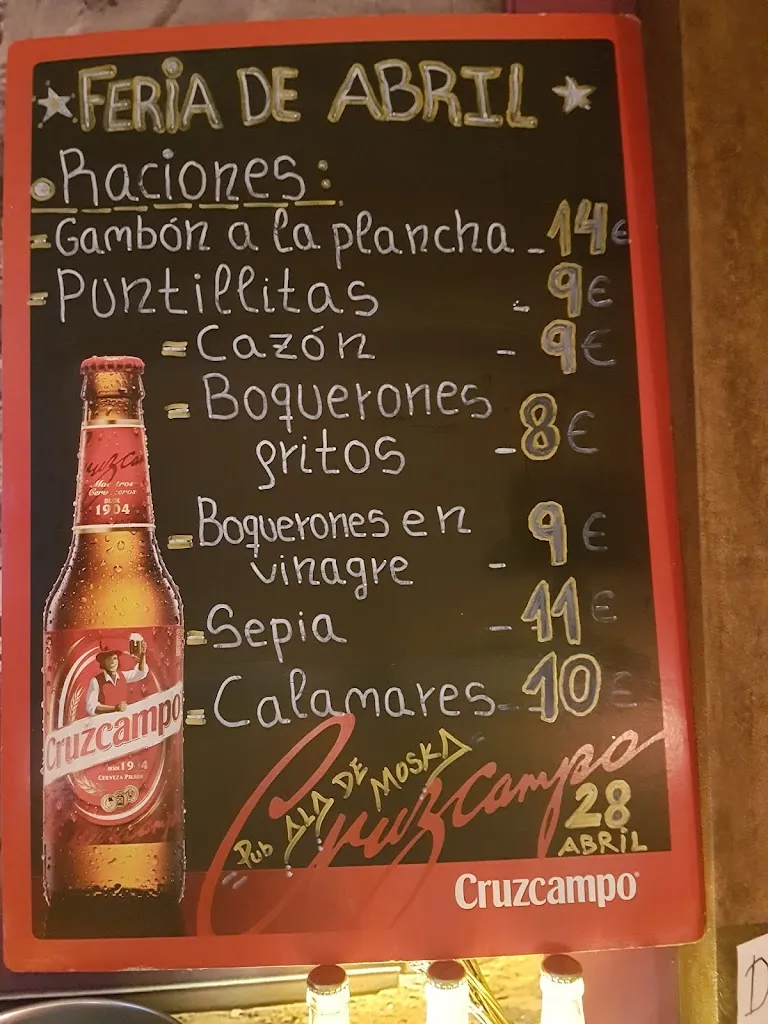 FERiA DE ABRIL
Raciones:
- Gambón a la plancha - 14€
- Puntillitas - 9€
- Cazón - 9€
- Boquerones
fritos - 8€
- Boquerones en 9€
vinagre -
- Sepia - 11€
- Calamares - 10€
Maestros
Cerveceros
1904
Cruzcampo
CERVEZA PILSEN
Pub ALA DE MOSKA
Cruzcampo
28
ABRiL
Cruzcampo
D